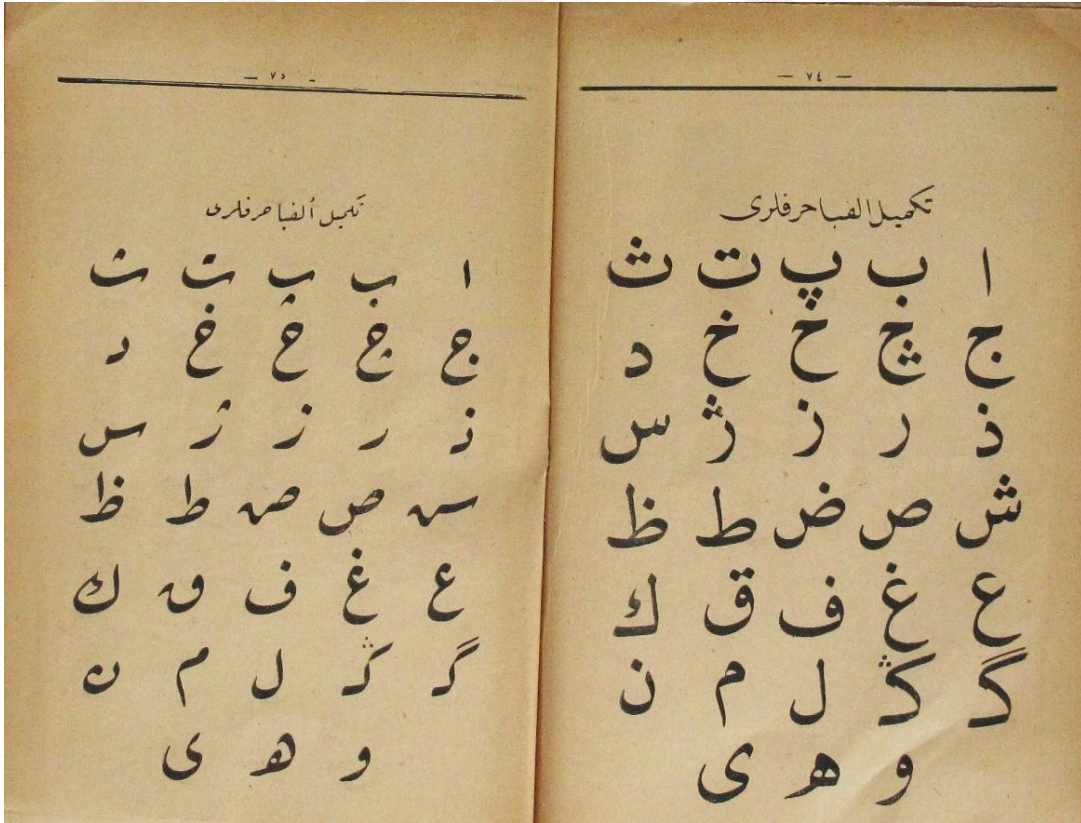 — ٧٤ —
تكميل الفبا حرفلرى
ا ب پ ت ث
ج چ ح خ د
ذ ر ز ژ س
ش ص ض ط ظ
ع غ ف ق ك
گ ڭ ل م ن
و ه ى
— ٧٥ -
تكميل ألفبا حرفلرى
ا ب پ ت ث
ج چ ح خ د
ذ ر ز ژ س
ش ص ض ط ظ
ع غ ف ق ك
گ ڭ ل م ن
و ه ى